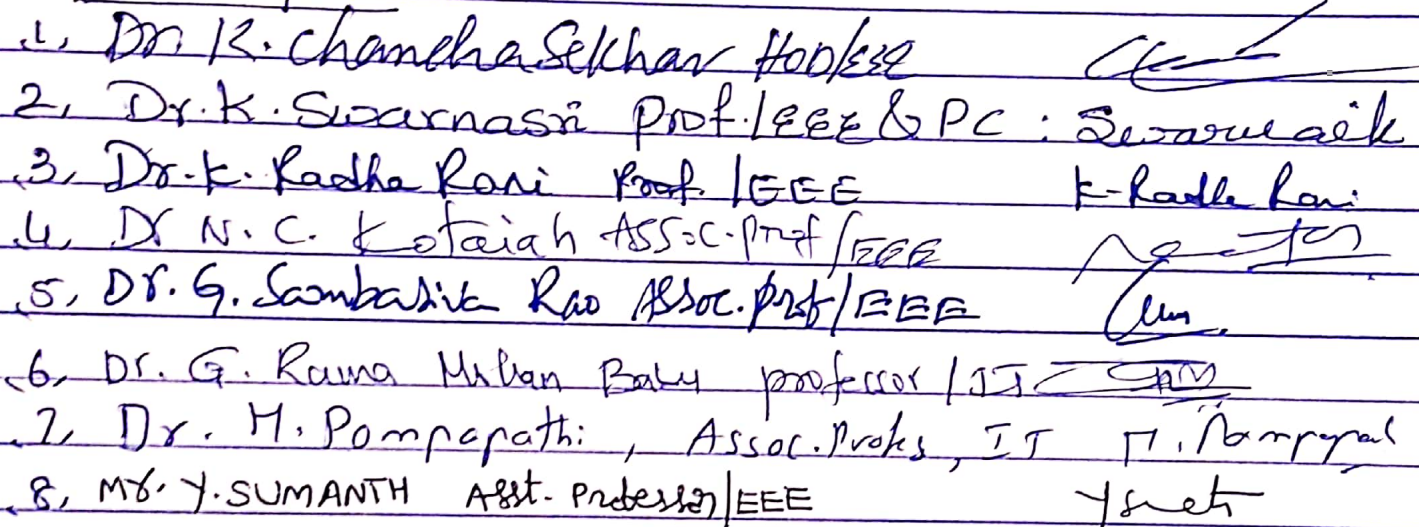 1, Dr. K. Chandra Sekhar HOD/EEE
2, Dr. K. Swarnasri Prof./EEE & PC :
3, Dr. K. Radha Rani Prof. /EEE K. Radha Rani
4, Dr N. C. Kotaiah Assoc. Prof/EEE
5, Dr. G. Sambasiva Rao Assoc. Prof/EEE
6, Dr. G. Rama Mohan Babu professor / IT
7, Dr. M. Pompapathi, Assoc. Profs, IT
8, Mr. Y. SUMANTH Asst. Professor/EEE